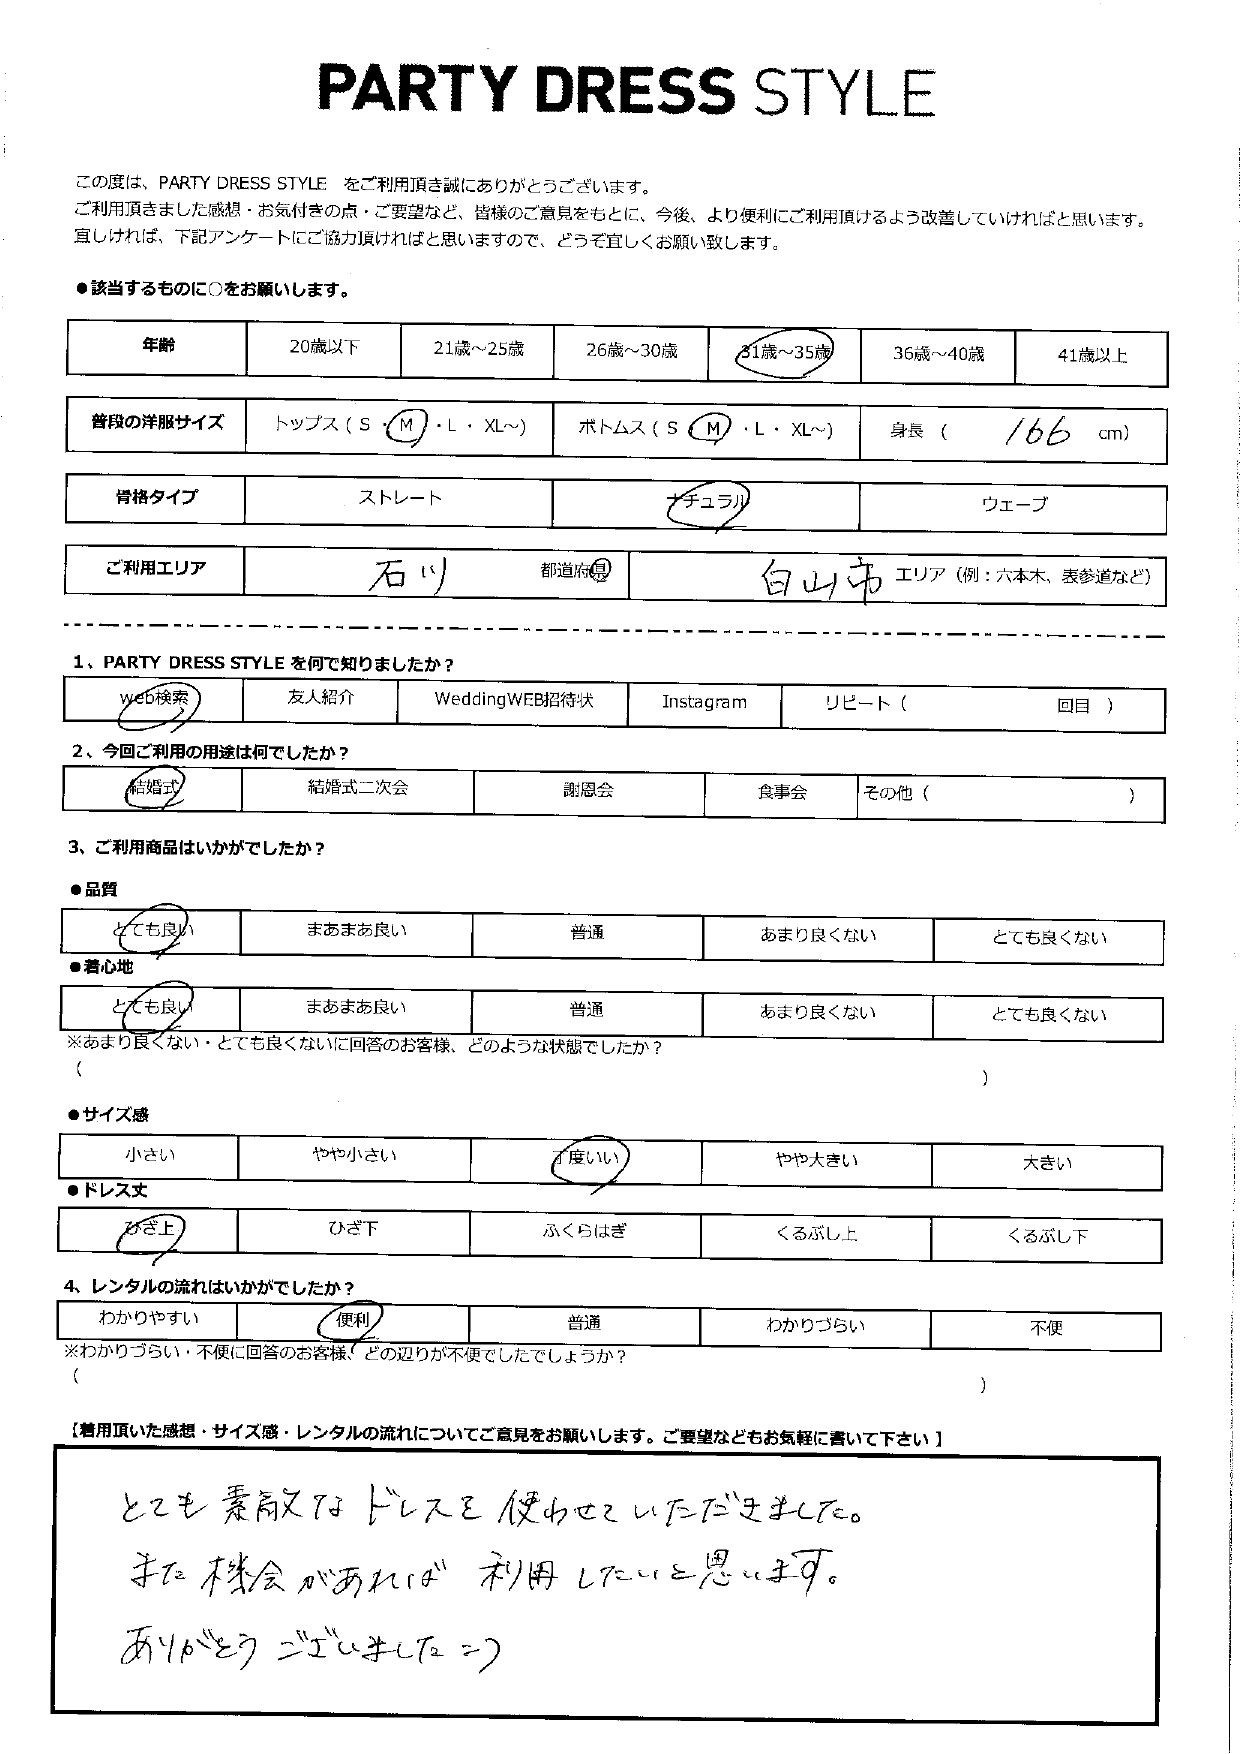 PARTY DRESS STYLE
この度は、PARTY DRESS STYLE をご利用頂き誠にありがとうございます。
ご利用頂きました感想・お気付きの点・ご要望など、皆様のご意見をもとに、今後、より便利にご利用頂けるよう改善していければと思います。
宜しければ、下記アンケートにご協力頂ければと思いますので、どうぞ宜しくお願い致します。
●該当するものに○をお願いします。
年齢 20歳以下 21歳～25歳 26歳～30歳 31歳～35歳 36歳～40歳 41歳以上
普段の洋服サイズ トップス ( S ・ M ・ L ・ XL～) ボトムス ( S M ・ L ・ XL～) 身長 ( 166 cm)
骨格タイプ ストレート ナチュラル ウェーブ
ご利用エリア 石川 都道府県 白山市 エリア（例：六本木、表参道など）
1、PARTY DRESS STYLE を何で知りましたか？
web検索 友人紹介 WeddingWEB招待状 Instagram リピート ( 回目 )
2、今回ご利用の用途は何でしたか？
結婚式 結婚式二次会 謝恩会 食事会 その他 ( )
3、ご利用商品はいかがでしたか？
●品質
とても良い まあまあ良い 普通 あまり良くない とても良くない
●着心地
とても良い まあまあ良い 普通 あまり良くない とても良くない
※あまり良くない・とても良くないに回答のお客様、どのような状態でしたか？
( )
●サイズ感
小さい やや小さい 丁度いい やや大きい 大きい
●ドレス丈
ひざ上 ひざ下 ふくらはぎ くるぶし上 くるぶし下
4、レンタルの流れはいかがでしたか？
わかりやすい 便利 普通 わかりづらい 不便
※わかりづらい・不便に回答のお客様、どの辺りが不便でしたでしょうか？
( )
【着用頂いた感想・サイズ感・レンタルの流れについてご意見をお願いします。ご要望などもお気軽に書いて下さい】
とても素敵なドレスを使わせていただきました。
また機会があれば利用したいと思います。
ありがとうございました =)